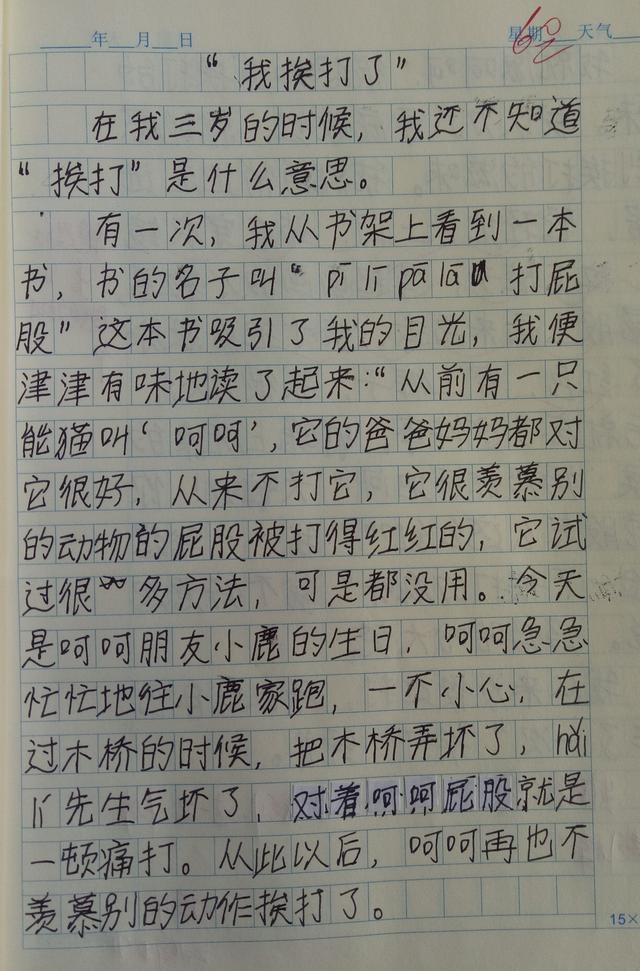 年 月 日 星期 天气
“我挨打了”
在我三岁的时候，我还不知道
“挨打”是什么意思。
有一次，我从书架上看到一本
书，书的名子叫“pī lī pā lā 打屁
股”这本书吸引了我的目光，我便
津津有味地读了起来：“从前有一只
能猫叫‘呵呵’，它的爸爸妈妈都对
它很好，从来不打它，它很羡慕别
的动物的屁股被打得红红的，它试
过很多方法，可是都没用。今天
是呵呵朋友小鹿的生日，呵呵急急
忙忙地往小鹿家跑，一不小心，在
过木桥的时候，把木桥弄坏了，hǎi
lí先生气坏了，对着呵呵屁股就是
一顿痛打。从此以后，呵呵再也不
羡慕别的动作挨打了。
15×